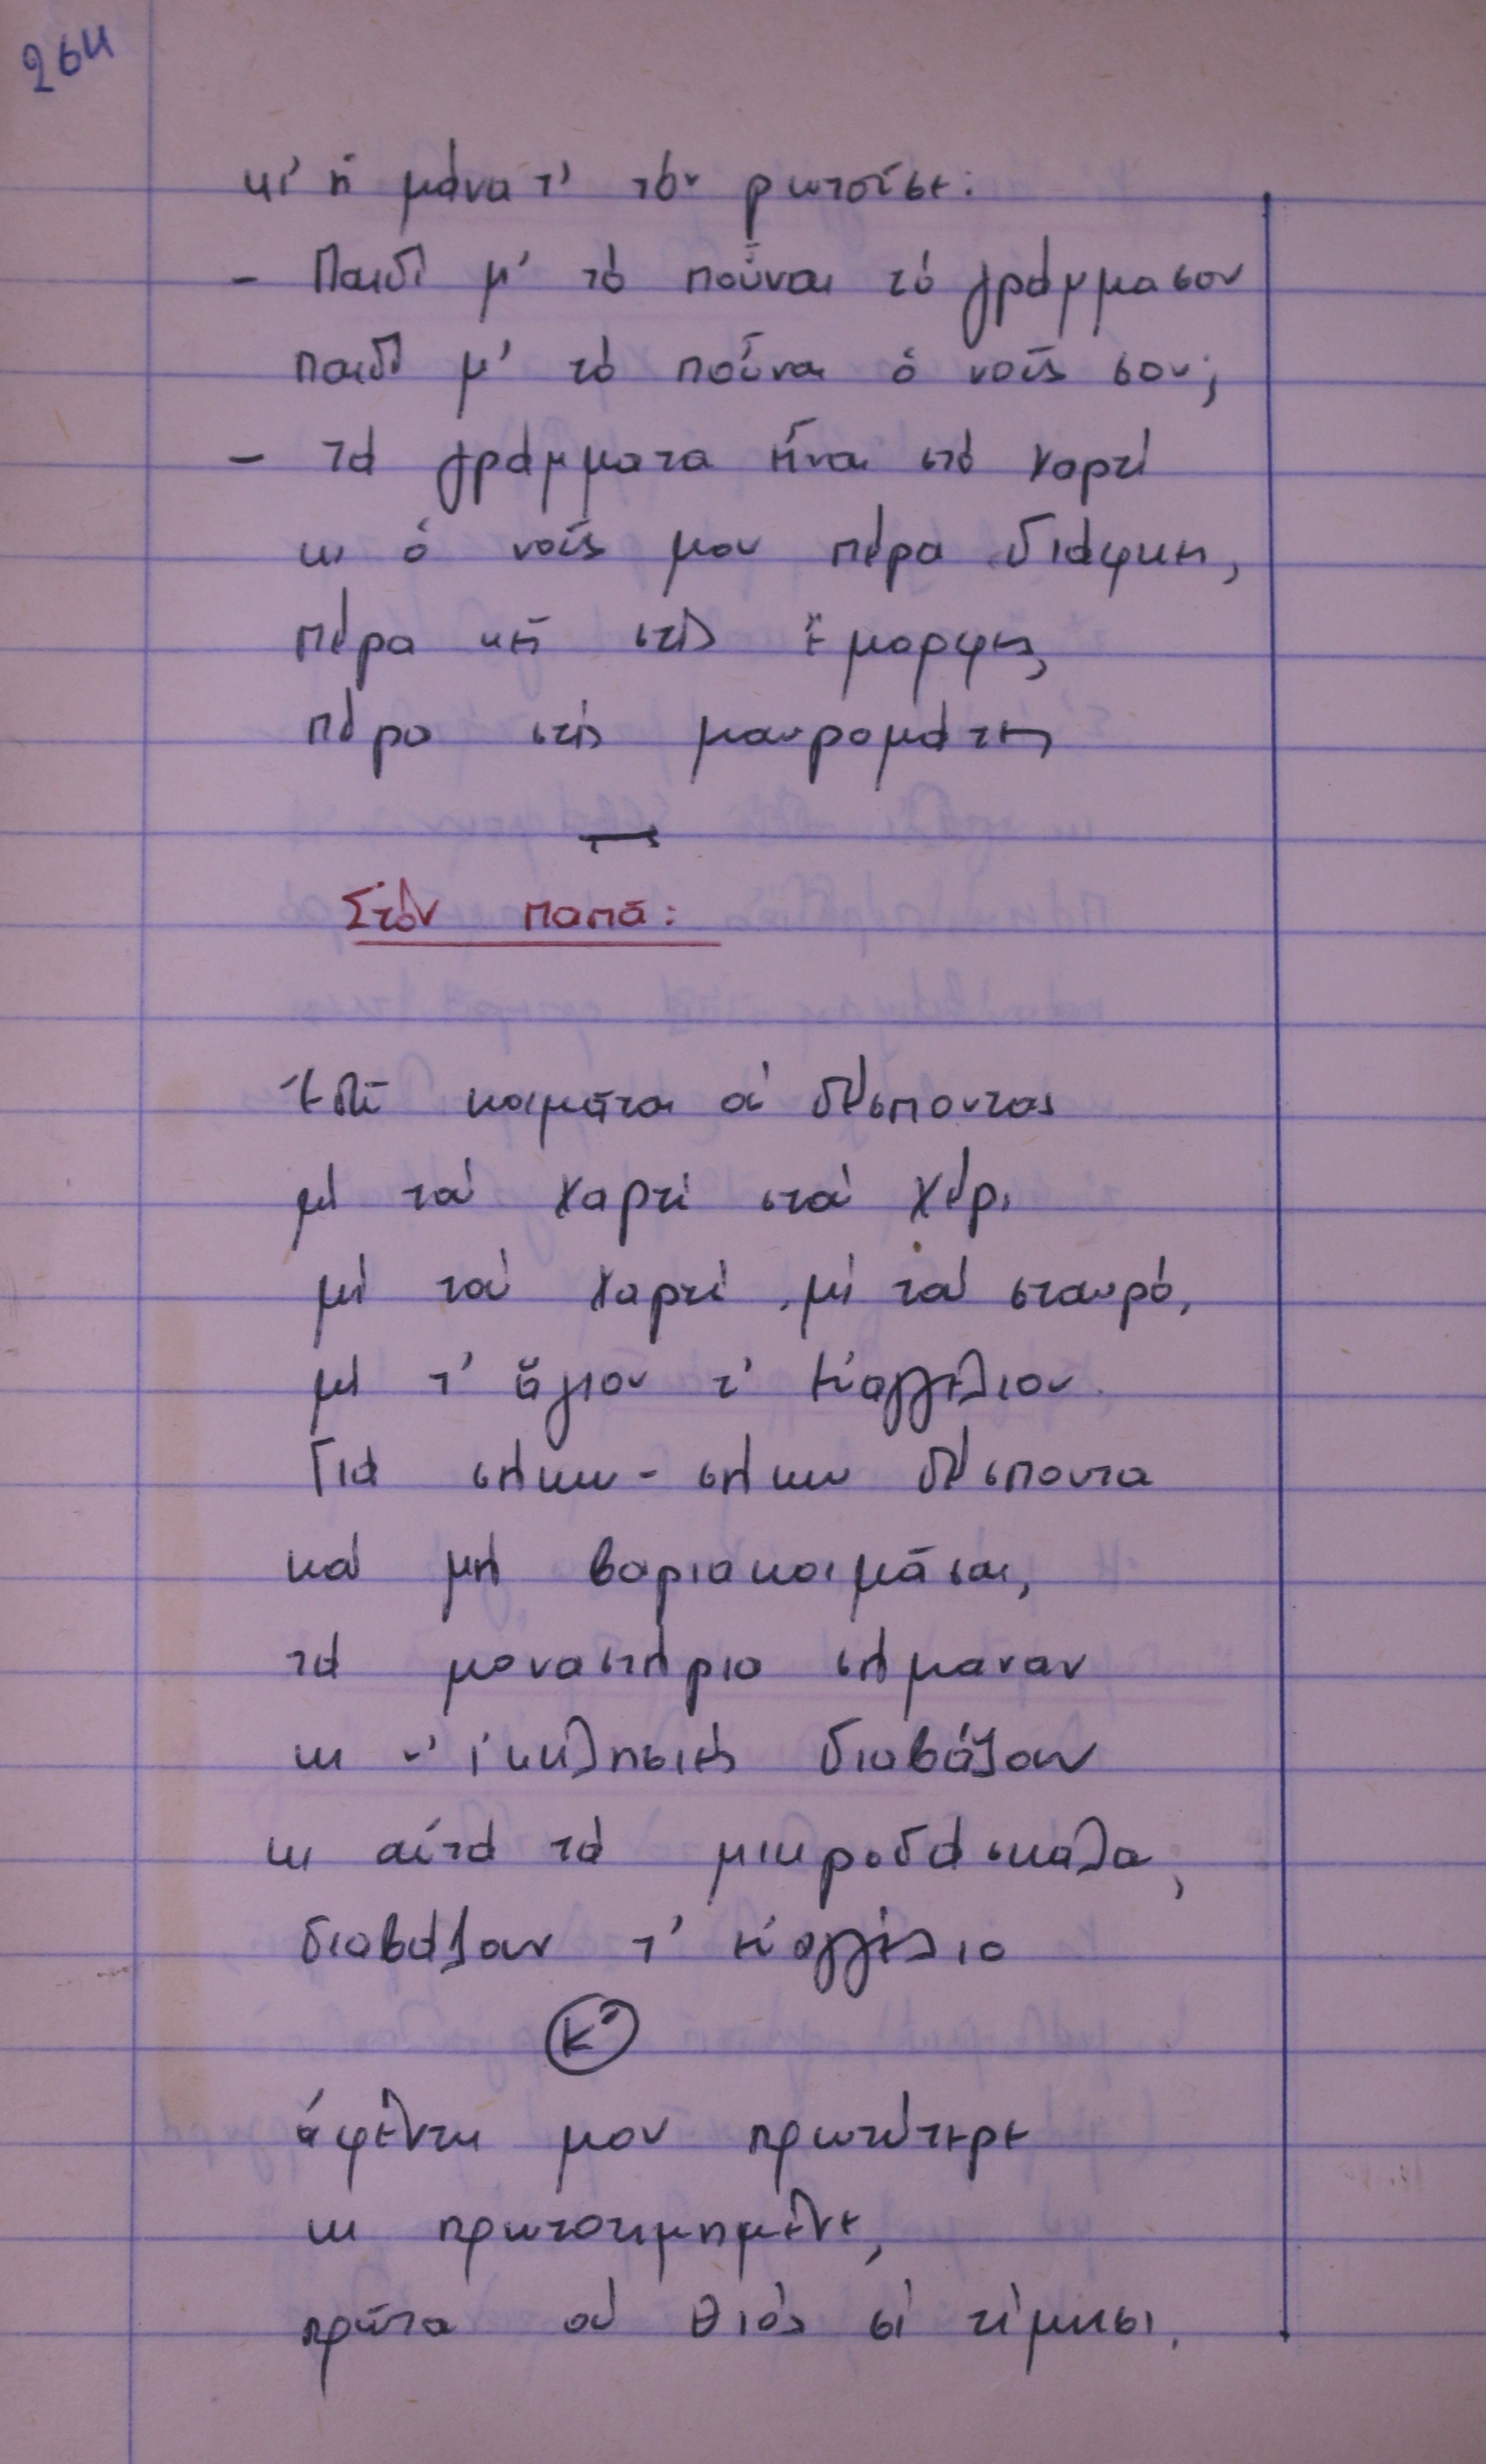 264
κι' ἡ μάνα τ' τόν ρωτοῦσε:
- Παιδί μ' τό ποῦναι τό γράμμα σου
παιδί μ' τό ποῦναι ὁ νοῦς σου;
- τά γράμματα εἶναι στό χαρτί
κι ὁ νοῦς μου πέρα διάφκη,
πέρα κεῖ στίς ἔμορφες,
πέρα στίς μαυρομάτες
Στόν παπᾶ:
Ἐδῶ κοιμᾶται οὑ δέσποντας
μέ τού χαρτί στού χέρι
μέ τού χαρτί, μέ τού σταυρό,
μέ τ' ἅγιου τ' εὐαγγέλιου.
Γιά σήκω - σήκω δέσποντα
καί μή βαριακοιμᾶσαι,
τά μοναστήρια σήμαναν
κι ν' ἰκκλησιές διαβάζουν
κι αὐτά τά μικροδάσκαλα,
διαβάζουν τ' εὐαγγέλιο
Κ'
ἀφέντη μου πρωτύτερε
κι πρωτοτιμημένε,
πρῶτα οὑ θιός σί τίμησι.